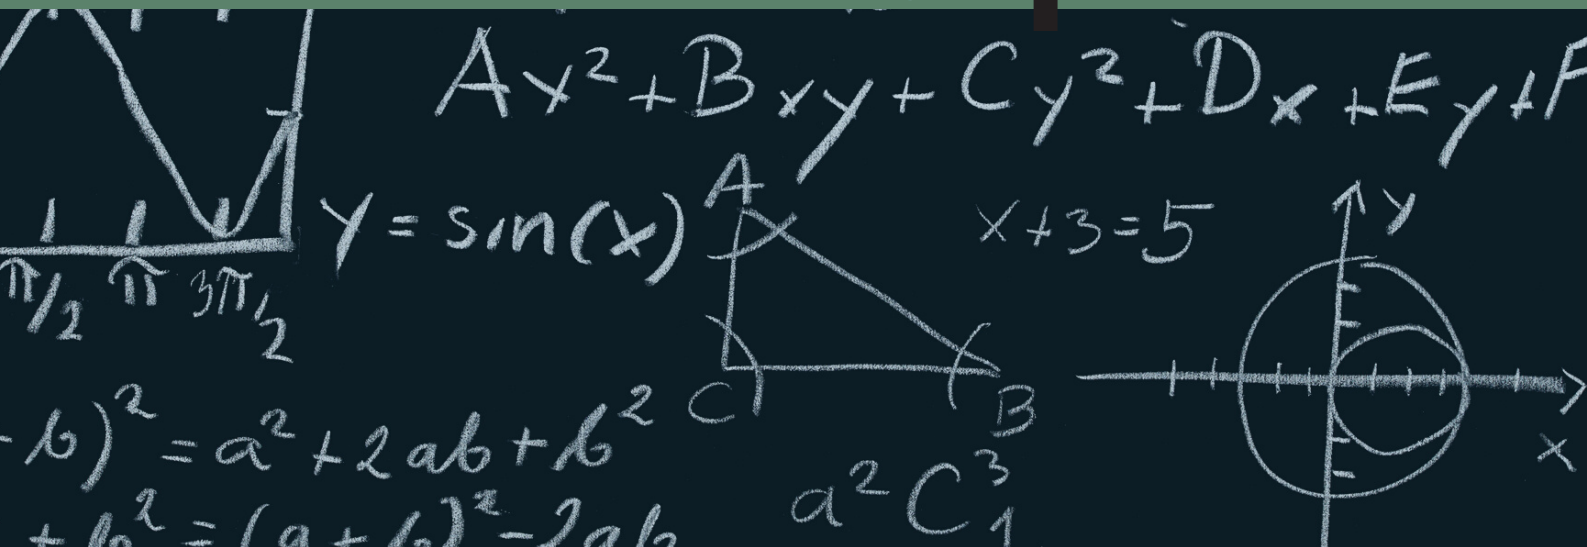 Ax² + Bxy + Cy² + Dx + Ey + F
A
y
y = sin(x)
x + 3 = 5
π/2 π 3π/2
C
B
x
- b)² = a² + 2ab + b²
a² C₁³
+ b² = (a + b)² - 2ab